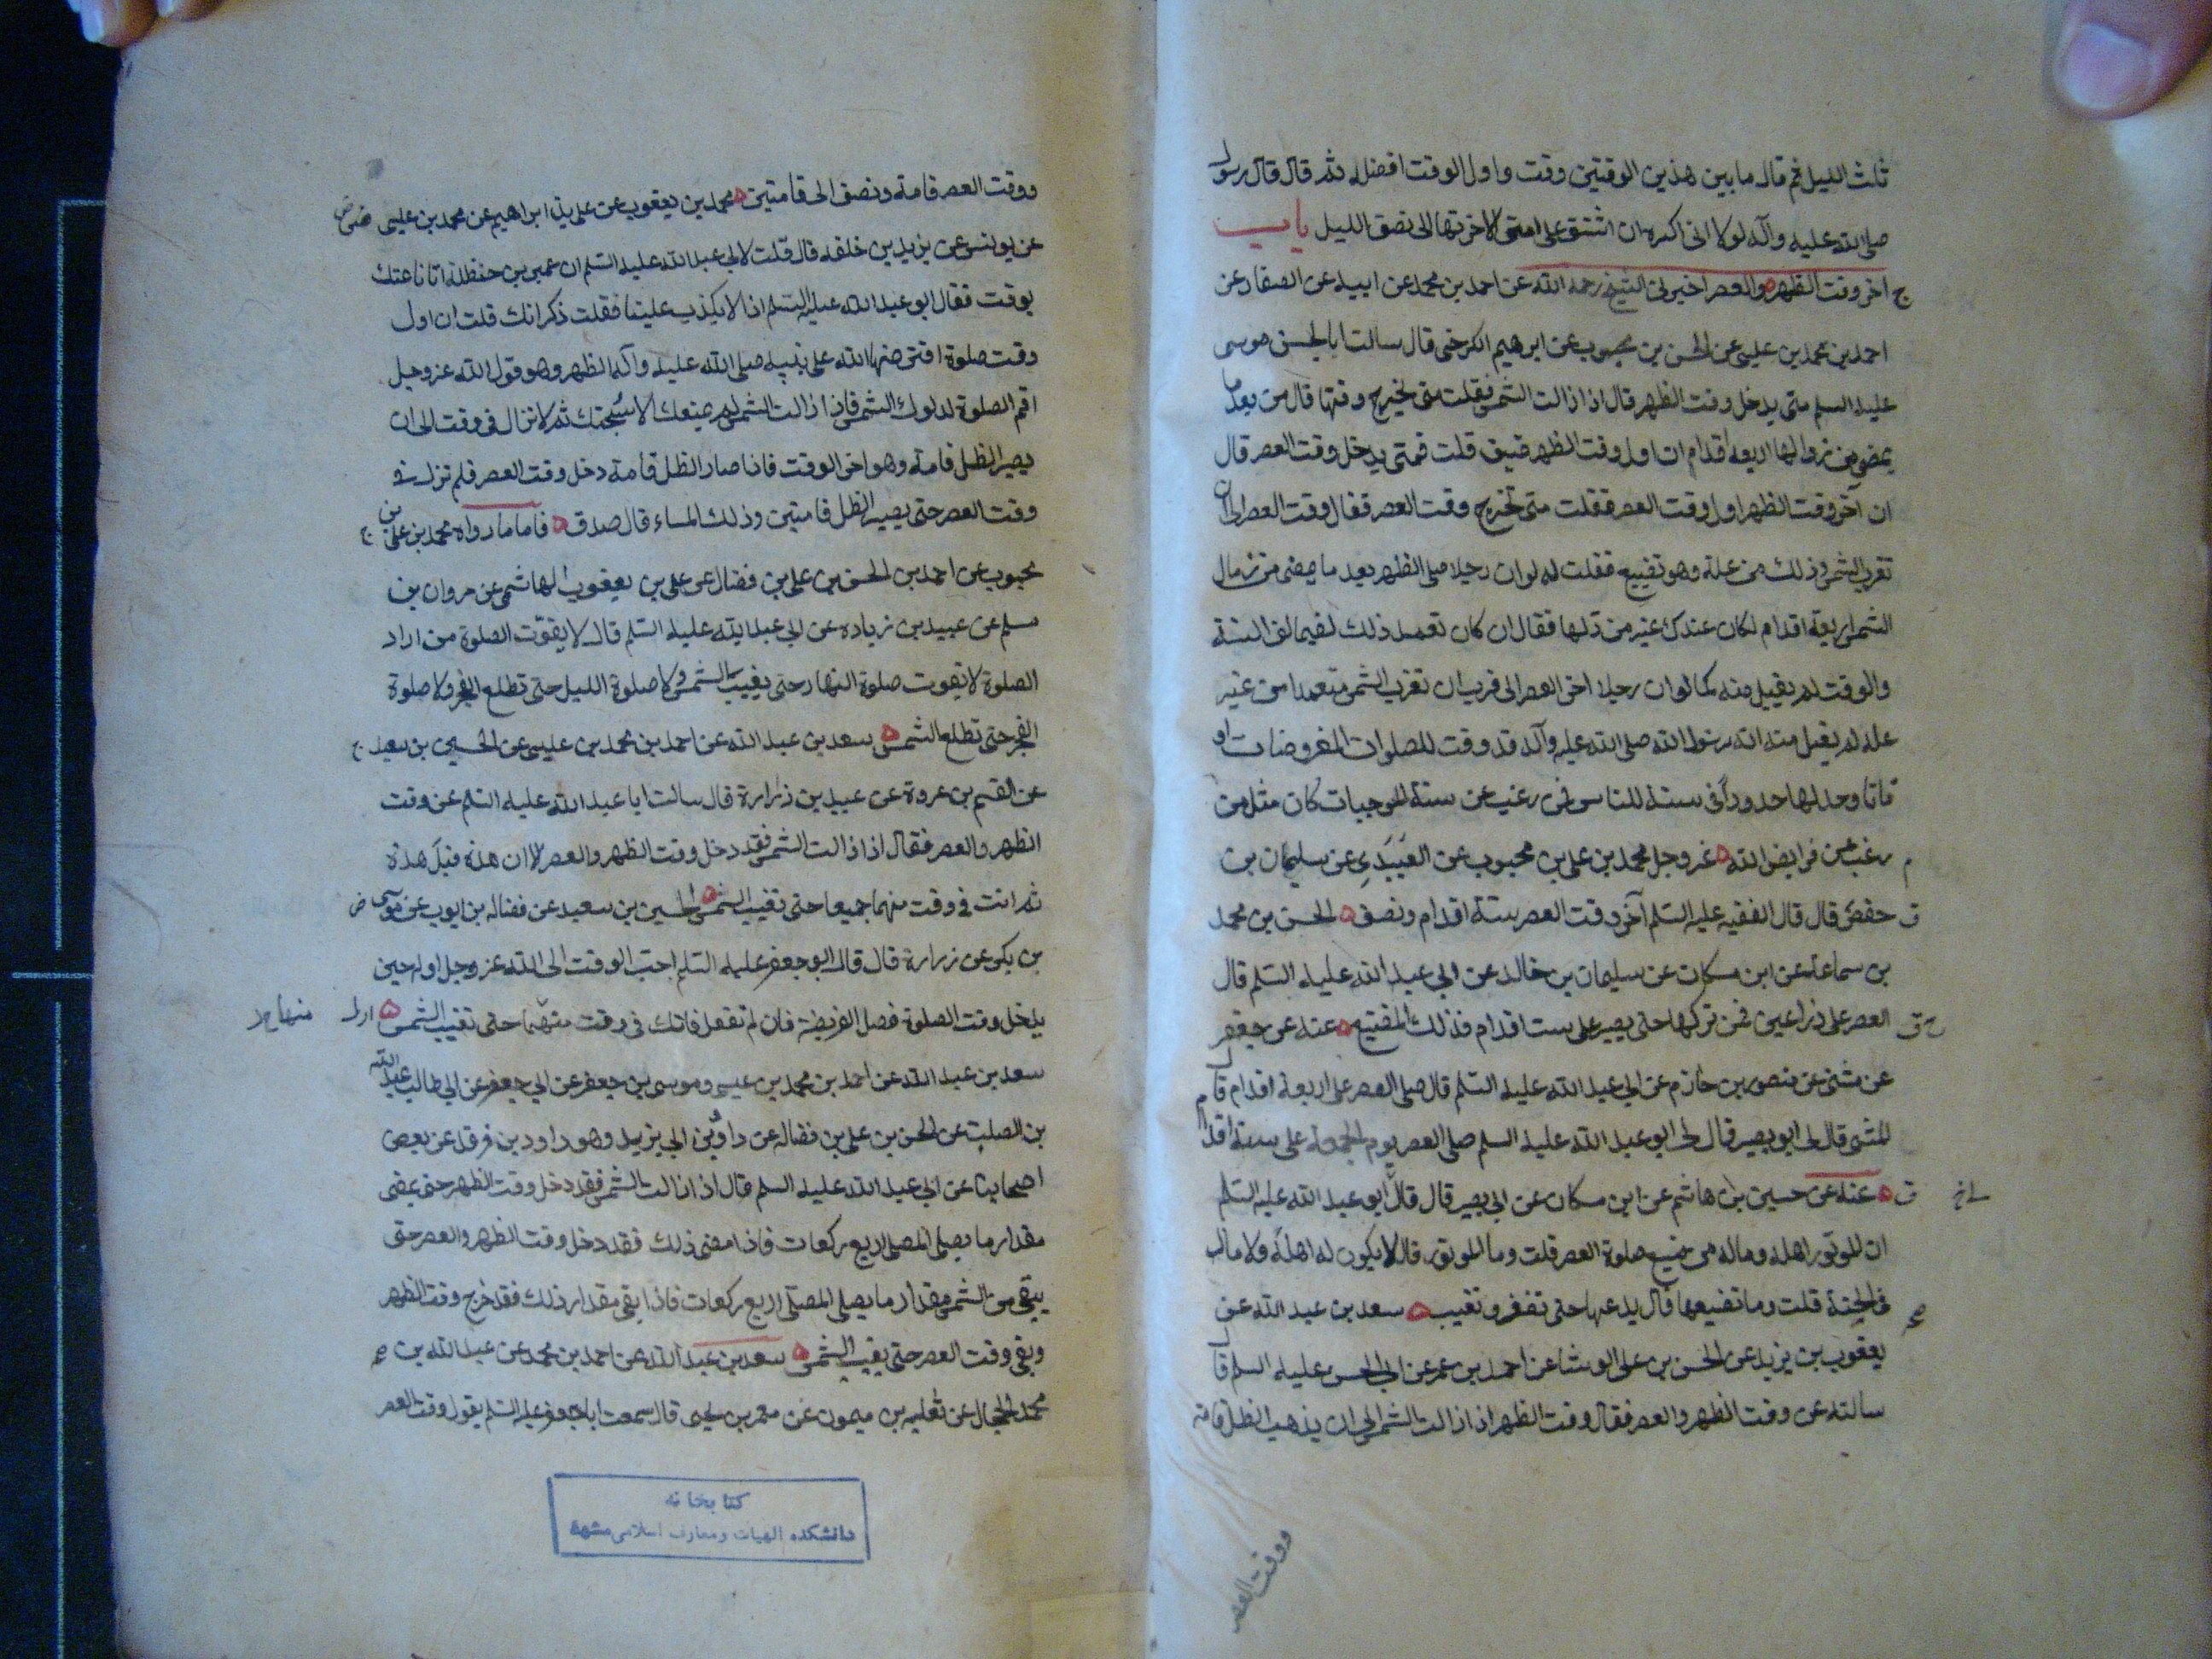 ثلث الليل ثم قال ما بين هذين الوقتين وقت واول الوقت افضله ثم قال قال رسول
صلى الله عليه وآله لولا انى اكره ان اشق على امتى لاخرتها الى نصف الليل باب
ج اخر وقت الظهر والعصر اخبرنى الشيخ رحمه الله عن احمد بن محمد عن ابيه عن الصفار عن
احمد بن محمد بن عيسى عن الحسن بن محبوب عن ابرهيم الكرخى قال سالت ابا الحسن موسى
عليه السلم متى يدخل وقت الظهر قال اذا زالت الشمس فقلت متى يخرج وقتها قال من بعد ما
يمضى من زوالها اربعه اقدام ان اول وقت الظهر ضيق قلت فمتى يدخل وقت العصر قال
ان آخر وقت الظهر اول وقت العصر فقلت متى تخرج وقت العصر فقال وقت العصر الى ان
تغرب الشمس وذلك من علة وهو تضييع فقلت له لو ان رجلا صلى الظهر بعد ما يمضى من زوال
الشمس اربعة اقدام لكان عندك غير مؤد لها فقال ان كان تعمد ذلك ليخالف السنة
والوقت لم يقبل منه كما لو ان رجلا اخر العصر الى قرب ان تغرب الشمس متعمدا من غير
عله لم يقبل منه ان رسول الله صلى الله عليه وآله قد وقت للصلوات المفروضات او
قاتا وحد لها حدوداً فى سنة للناس فمن رغب عن سنة الموجبات كان مثل من
م رغب عن فرايض الله عزوجل محمد بن على بن محبوب عن العبيدى عن سليمان بن
ق حفص قال قال الفقيه عليه السلم آخر وقت العصر ستة اقدام ونصف الحسن بن محمد
بن سماعة عن ابن مسكان عن سليمان بن خالد عن ابى عبد الله عليه السلم قال
ق العصر على ذراعين فمن تركها حتى يصير على ست اقدام فذلك المضيع عنه عن جعفر
عن مثنى عن منصور بن حازم عن ابى عبد الله عليه السلم قال صل العصر على اربعة اقدام قال
المثنى قال لى ابو بصير قال لى ابو عبد الله عليه السلم صلى العصر يوم الجمعة على ستة اقدام
ق عنه عن حسين بن هاشم عن ابن مسكان عن ابى بصير قال قال ابو عبد الله عليه السلم
ان الموتور اهله وماله من ضيع صلوة العصر قلت وما الموتور قال لا يكون له اهله ولا مال
فى الجنة قلت وما تضييعها قال يدعها حتى تصفر وتغيب سعد بن عبد الله عن
يعقوب بن يزيد عن الحسن بن على الوشا عن احمد بن عمر عن ابى الحسن عليه السلم قال
سالته عن وقت الظهر والعصر فقال وقت الظهر اذا زالت الشمس الى ان يذهب الظل قامة
ووقت العصر
ووقت العصر قامة ونصف الى قامتين محمد بن يعقوب عن على بن ابراهيم عن محمد بن عيسى
عن يونس عن يزيد بن خليفه قال قلت لابى عبد الله عليه السلم ان عمر بن حنظلة اتانا عنك
بوقت فقال ابو عبد الله عليه السلم اذا لا يكذب علينا فقلت ذكر انك قلت ان اول
وقت صلوة افترضها الله على نبيه صلى الله عليه وآله الظهر وهو قول الله عزوجل
اقم الصلوة لدلوك الشمس فاذا زالت الشمس لم يمنعك الا سبحتك ثم لا تزال فى وقت الى ان
يصير الظل قامة وهو اخر الوقت فاذا صار الظل قامة دخل وقت العصر فلم تزل فى
وقت العصر حتى يصير الظل قامتين وذلك المساء قال صدق فاما ما رواه محمد بن على بن
محبوب عن احمد بن الحسن بن على بن فضال عن على بن يعقوب الهاشمى عن مروان بن
مسلم عن عبيد بن زياده عن ابى عبد الله عليه السلم قال لا يفوت الصلوة من اراد
الصلوة لا تفوت صلوة النهار حتى تغيب الشمس ولا صلوة الليل حتى تطلع الفجر ولا صلوة
الفجر حتى تطلع الشمس سعد بن عبد الله عن احمد بن محمد بن عيسى عن الحسين بن سعيد
عن القسم بن عروة عن عبيد بن زرارة قال سالت ابا عبد الله عليه السلم عن وقت
الظهر والعصر فقال اذا زالت الشمس فقد دخل وقت الظهر والعصر الا ان هذه قبل هذه
ثم انت فى وقت منهما جميعا حتى تغيب الشمس الحسين بن سعيد عن فضاله بن ايوب عن موسى
بن بكر عن زرارة قال قال ابو جعفر عليه السلم احب الوقت الى الله عزوجل اوله حين
يدخل وقت الصلوة فصل الفريضة فان لم تفعل فانك فى وقت منهما حتى تغيب الشمس
سعد بن عبد الله عن احمد بن محمد بن عيسى وموسى بن جعفر عن ابى جعفر عن ابى طالب عبد الله
بن الصلت عن الحسن بن على بن فضال عن داود بن ابى يزيد وهو داود بن فرقد عن بعض
اصحابنا عن ابى عبد الله عليه السلم قال اذا زالت الشمس فقد دخل وقت الظهر حتى يمضى
مقدار ما يصلى المصلى اربع ركعات فاذا مضى ذلك فقد دخل وقت الظهر والعصر حتى
يبقى من الشمس مقدار ما يصلى المصلى اربع ركعات فاذا بقى مقدار ذلك فقد خرج وقت الظهر
وبقى وقت العصر حتى يغيب الشمس سعد بن عبد الله عن احمد بن محمد عن عبد الله بن
محمد الحجال عن ثعلبه بن ميمون عن معمر بن يحيى قال سمعت ابا جعفر عليه السلم يقول وقت العصر
كتابخانه
دانشكده الهيات ومعارف اسلامى مشهد